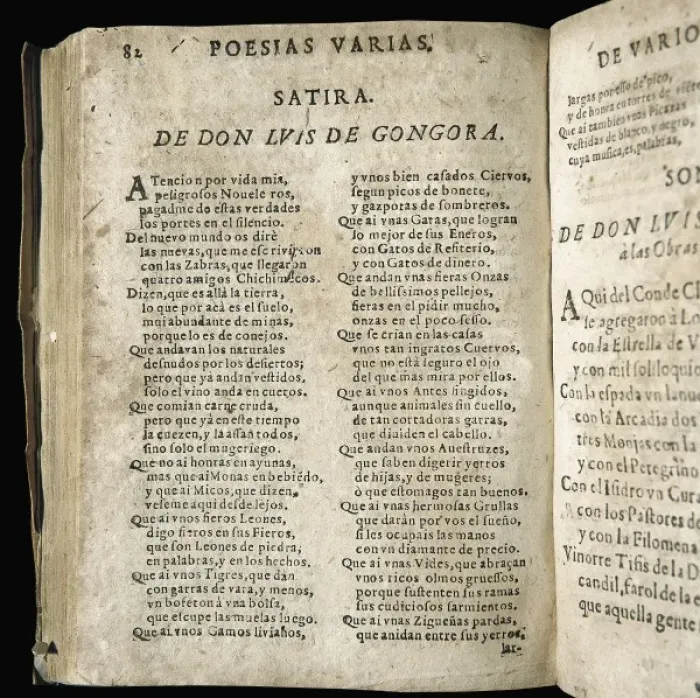 82 POESIAS VARIAS.
SATIRA.
DE DON LVIS DE GONGORA.
ATencion por vida mia,
peligrosos Nouele ros,
pagadme de estas verdades
los portes en el silencio.
Del nuevo mundo os dirè
las nuevas, que me escrivieron
con las Zabras, que llegaron
quatro amigos Chichimecos.
Dizen, que es allà la tierra,
lo que por acà es el suelo,
mui abundante de minas,
porque lo es de conejos.
Que andavan los naturales
desnudos por los desiertos;
pero que yà andan vestidos,
solo el vino anda en cueros.
Que comian carne cruda,
pero que yà en este tiempo
la cuezen, y la assan todos,
sino solo el mugeriego.
Que no ai honras en ayunas,
mas que ai Monas en bebiedo,
y que ai Micos, que dizen,
veseme aqui desde lejos.
Que ai vnos fieros Leones,
digo fieros en sus Fieros,
que son Leones de piedra;
en palabras, y en los hechos.
Que ai vnos Tigres, que dan
con garras de vara, y menos,
vn bofeton à vna bolsa,
que escupe las muelas luego.
Que ai vnos Gamos livianos,
y vnos bien casados Ciervos,
segun picos de bonete,
y gazporas de sombreros.
Que ai vnas Gatas, que logran
lo mejor de sus Eneros,
con Gatos de Refiterio,
y con Gatos de dinero.
Que andan vnas fieras Onzas
de bellissimos pellejos,
fieras en el pidir mucho,
onzas en el poco sesso.
Que se crian en las casas
vnos tan ingratos Cuervos,
que no està seguro el ojo
del que mas mira por ellos.
Que ai vnos Antes fingidos,
aunque animales sin cuello,
de tan cortadoras garras,
que diuiden el cabello.
Que andan vnos Auestruzes,
que saben digerir yerros
de hijas, y de mugeres;
ò que estomagos tan buenos.
Que ai vnas hermosas Grullas
que daràn por vos el sueño,
si les ocupais las manos
con vn diamante de precio.
Que ai vnas Vides, que abraçan
vnos ricos olmos gruessos,
porque sustenten sus ramas
sus cudiciosos sarmientos.
Que ai vnas Zigueñas pardas,
que anidan entre sus yerros,
lar-
DE VARIO
largas por esso de pico,
y de honra en torres de
Que ai tambien vnas Pierzas
vestidas de blanco, y negro,
cuya musica, es, palabras,
SON
DE DON LVIS
à las Obras
AQui del Conde Cl
se agregaron à Lo
con la Estrella de V
y con mil soliloquio
Con la espada vn
con la Arcadia dos
tres Monjas con la
y con el Peregrino
Con el Isidro vn Cura
con los Pastores de
y con la Filomena
Vinorre Tifis de la D
candil, farol de la e
que aquella gente